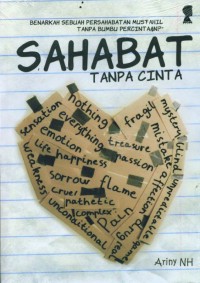 BENARKAH SEBUAH PERSAHABATAN MUSTAHIL
TANPA BUMBU PERCINTAAN?
SAHABAT
TANPA CINTA
nothing
fragile
sensation
everything
mystery
emotion
treasure
mistake
life happiness
passion
affection
weakness
sorrow
flame
cruel
pathetic
complex
pain
unconditional
Ariny NH